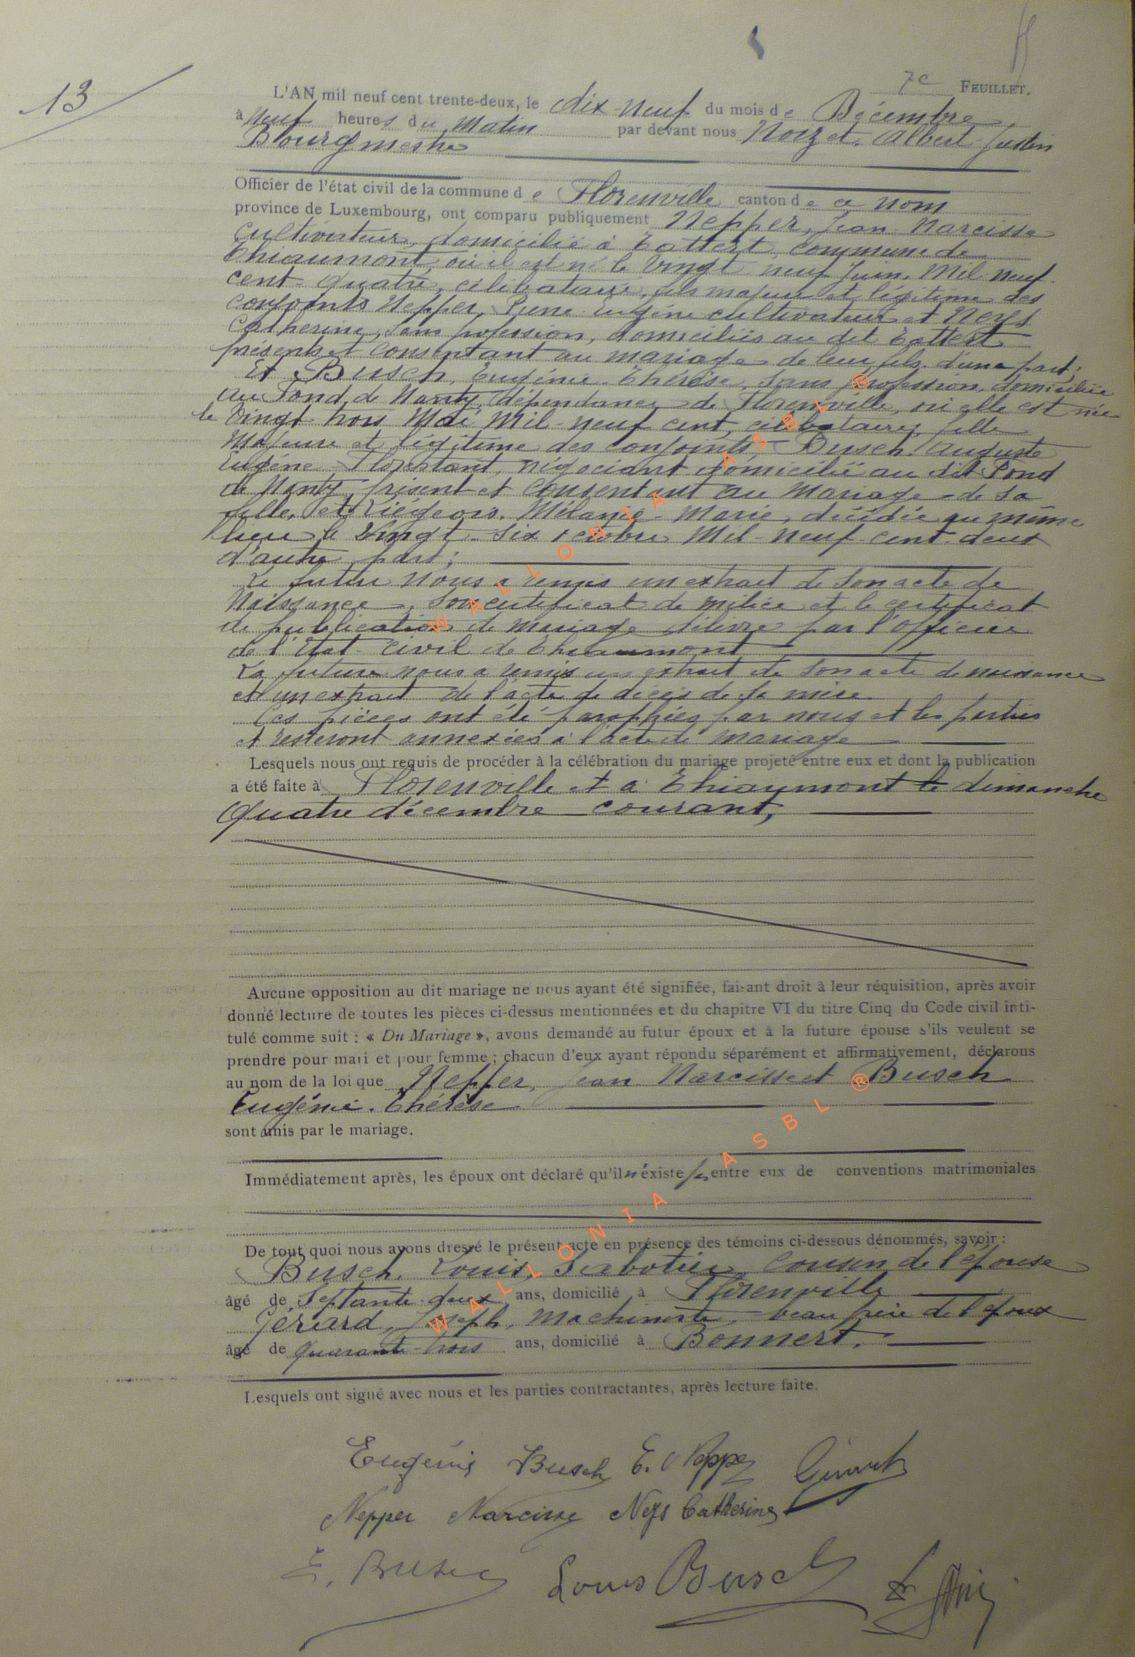 13
7e FEUILLET.
L'AN mil neuf cent trente-deux, le dix-neuf du mois de Décembre,
à neuf heures du matin par devant nous Noizet, Albert Justin
Bourgmestre
Officier de l'état civil de la commune de Florenville canton de ce nom
province de Luxembourg, ont comparu publiquement Nepper, Jean Narcisse
cultivateur, domicilié à Tattert, commune de
Thiaumont, où il est né le vingt neuf juin, mil neuf
cent quatre, célibataire, fils majeur et légitime des
conjoints Nepper, Pierre Eugène cultivateur et Neys
Catherine, sans profession, domiciliés au dit Tattert
présents et consentant au mariage de leur fils d'une part;
Et Busch, Eugénie Thérèse, sans profession domiciliée
au Fond de Nanty, dépendance de Florenville, où elle est née
le vingt trois Mai mil neuf cent, célibataire, fille
majeure et légitime des conjoints Busch, Auguste
Eugène Florestant, négociant domicilié au dit Fond
de Nanty, présent et consentant au mariage de sa
fille, et Liégeois, Mélanie Marie, décédée au même
lieu le vingt six octobre mil neuf cent deux
d'autre part;
Le futur nous a remis un extrait de son acte de
naissance, son certificat de milice et le certificat
de publication de mariage délivré par l'officier
de l'Etat civil de Thiaumont
La future nous a remis un extrait de son acte de naissance
et un extrait de l'acte de décès de sa mère.
Ces pièces ont été paraphées par nous et les parties
et resteront annexées à l'acte de mariage
Lesquels nous ont requis de procéder à la célébration du mariage projeté entre eux et dont la publication
a été faite à Florenville et à Thiaumont le dimanche
quatre décembre courant,
Aucune opposition au dit mariage ne nous ayant été signifiée, faisant droit à leur réquisition, après avoir
donné lecture de toutes les pièces ci-dessus mentionnées et du chapitre VI du titre Cinq du Code civil inti-
tulé comme suit : « Du Mariage », avons demandé au futur époux et à la future épouse s'ils veulent se
prendre pour mari et pour femme ; chacun d'eux ayant répondu séparément et affirmativement, déclarons
au nom de la loi que Nepper, Jean Narcisse et Busch
Eugénie Thérèse
sont unis par le mariage.
Immédiatement après, les époux ont déclaré qu'il n'existe pas entre eux de conventions matrimoniales
De tout quoi nous avons dressé le présent acte en présence des témoins ci-dessous dénommés, savoir :
Busch, Louis, Sabotier, cousin de l'épouse
âgé de septante-deux ans, domicilié à Florenville
Gérard, Joseph, machiniste, beau frère de l'époux
âgé de quarante-trois ans, domicilié à Bonnert.
Lesquels ont signé avec nous et les parties contractantes, après lecture faite.
Eugénie Busch E. Nepper Gérard
Nepper Narcisse Neys Catherine
E. Busch Louis Busch
WALLONIA ASBL ®
WALLONIA ASBL ®